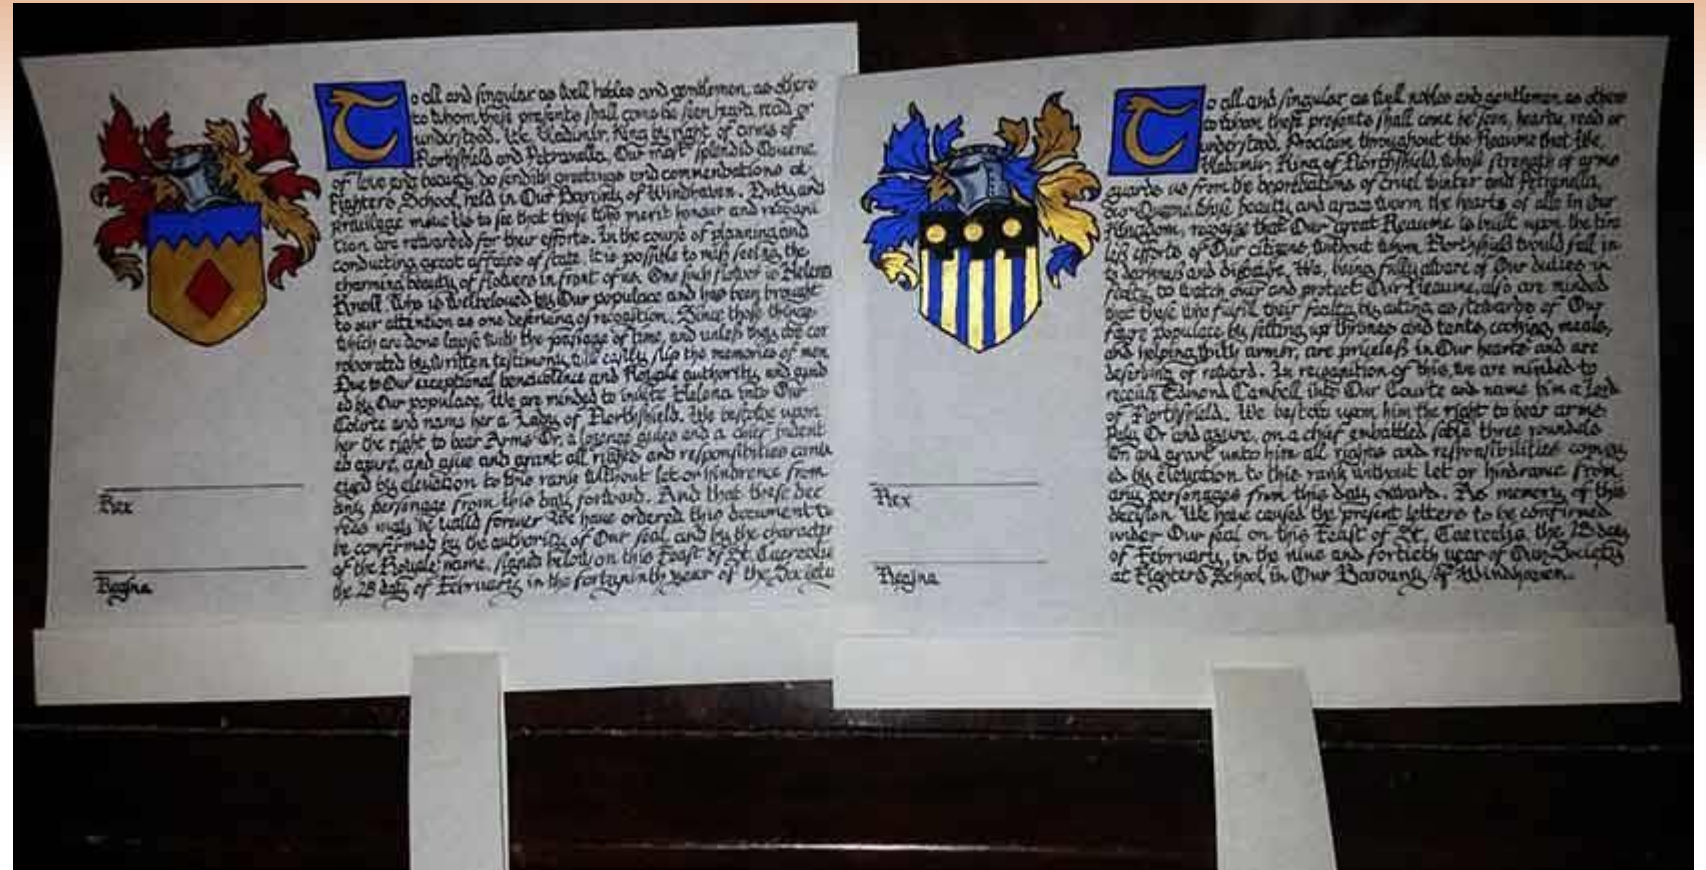 To all and singular as well nobles and gentlemen, as others
to whom these presents shall come be seen heard, read or
understood. We Vladimir King by right of arms of
Northshield and Petranella, Our most splendid Queene
of love and beauty do sendith greetings and commendations at
Fighters School, held in Our Barony of Windhaven. Duty and
privilage move Us to see that those who merit honour and recogni
tion are rewarded for their efforts. In the course of planning and
conducting great affairs of state, it is possible to miss seeing the
charming beauty of flowers in front of us. One such flower is Helena
Knoll who is wellbeloved by Our populace and has been brought
to our attention as one deserving of recognition. Since those things
which are done lapse with the passage of time, and unless they are cor
roborated by written testimony will easily slip the memories of men
Due to Our exceptional benevolence and Royale authority, and guid
ed by Our populace, We are minded to invite Helena into Our
Courte and name her a Lady of Northshield. We bestowe upon
her the right to bear Arms Or, a lozenge gules and a chief indent
ed azure, and give and grant all rights and responsibilities
by elevation to this rank without let or hindrence from
any personage from this day forward. And that these dec
rees may be valid forever We have ordered this document to
be confirmed by the authority of Our seal and by the character
of the Royale name, signed below on this Feast of St.
the 28 day of February, in the fortyninth year of the Society
Rex
Regina
To all and singular as well nobles and gentlemen as others
to whom these presents shall come be seen, hearde, read or
understood, Proclaim throughout the Reaume that We,
Vladimir King of Northshield, whose strength of arms
guards us from the depredations of cruel winter and Petranella,
our Queene whose beauty and grace warm the hearts of all in Our
Kingdom, recognise that Our great Reaume is built upon the tire
less efforts of Our citizens without whom Northshield would fall in
to darkness and disrepair. We, being fully aware of Our duties in
fealty to watch over and protect Our Reaume, also are minded
that those who fulfil their fealty by acting as stewards of Our
fayre populace by setting up thrones and tents, cooking meals,
and helping with armor, are priceless in Our hearts and are
deserving of reward. In recognition of this, we are minded to
receive Edmond Cambell into Our Courte and name him a Lord
of Northshield. We bestow upon him the right to bear arms
Paly Or and azure, on a chief embattled sable three roundels
Or and grant unto him all rights and responsibilities convey
ed by elevation to this rank without let or hindrance from
any personages from this day onward. As memory of this
decision, We have caused the present letters to be confirmed
under Our seal on this Feast of St. the 28 day
of February, in the nine and fortieth year of Our Society
at Fighters School in Our Barony of Windhaven.
Rex
Regina